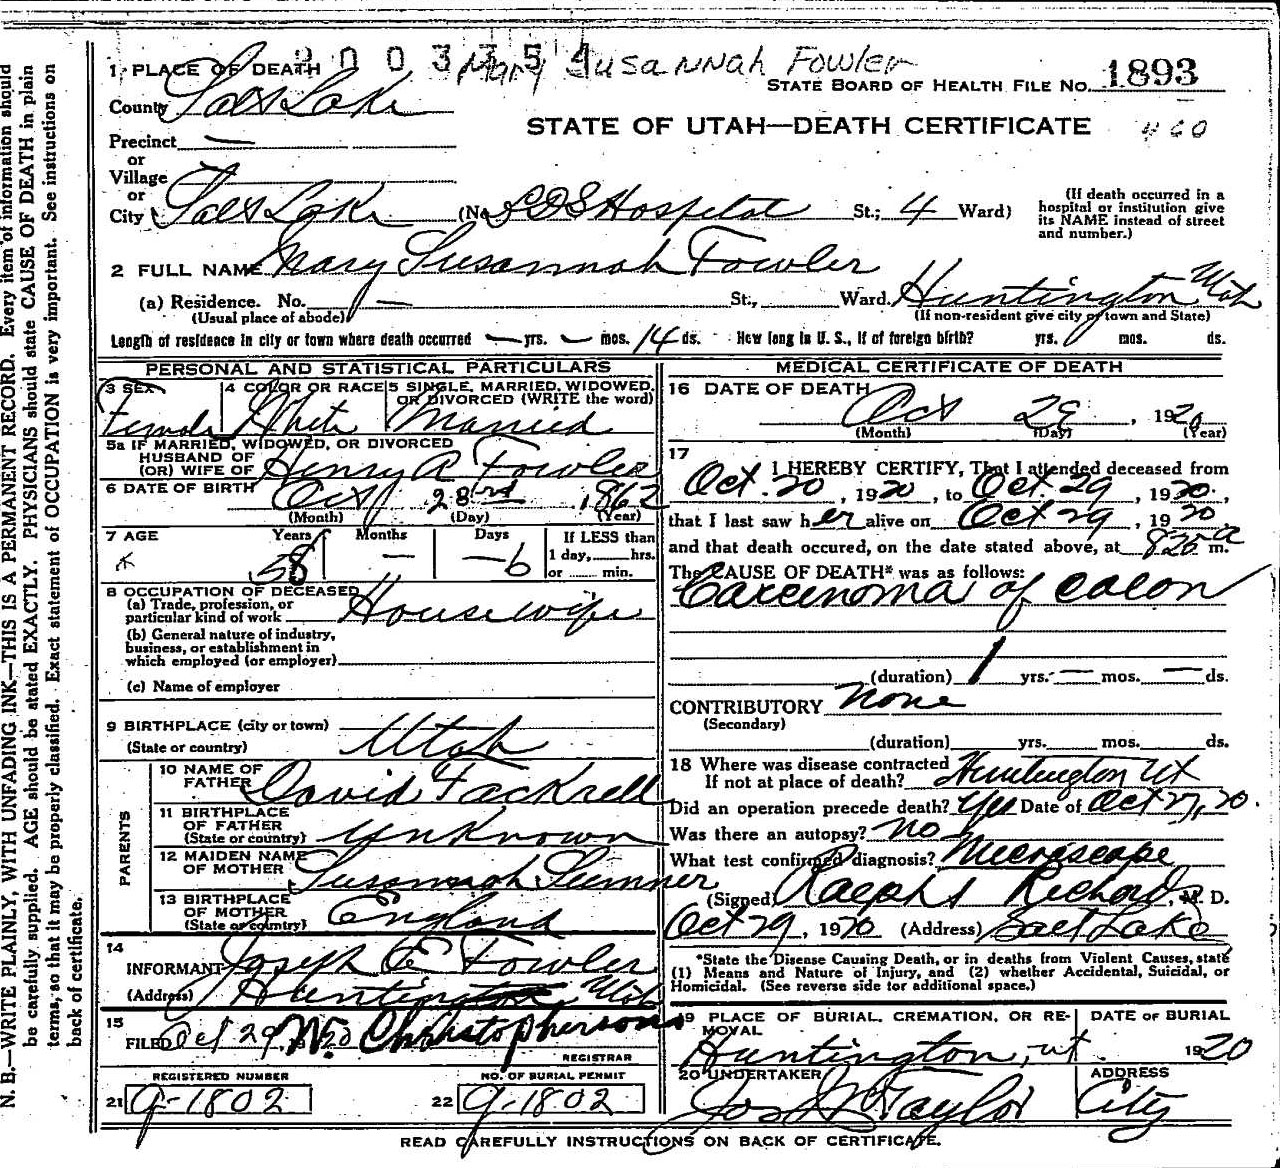 2003354 Mary Susannah Fowler
1 PLACE OF DEATH
STATE BOARD OF HEALTH FILE NO. 1893
County Salt Lake
STATE OF UTAH—DEATH CERTIFICATE 460
Precinct —
or
Village
or
City Salt Lake (No. LDS Hospital St.; 4 Ward)
(If death occurred in a hospital or institution give its NAME instead of street and number.)
2 FULL NAME Mary Susannah Fowler
(a) Residence. No. — St., Ward. Huntington Utah
(Usual place of abode) (If non-resident give city or town and State)
Length of residence in city or town where death occurred — yrs. — mos. 14 ds. How long in U. S., if of foreign birth? yrs. mos. ds.
PERSONAL AND STATISTICAL PARTICULARS
3 SEX Female
4 COLOR OR RACE White
5 SINGLE, MARRIED, WIDOWED, OR DIVORCED (WRITE the word) Married
5a IF MARRIED, WIDOWED, OR DIVORCED
HUSBAND OF
(OR) WIFE OF Henry A Fowler
6 DATE OF BIRTH Oct 23rd, 1862
(Month) (Day) (Year)
7 AGE Years 58 Months — Days 6
If LESS than
1 day, hrs.
or min.
8 OCCUPATION OF DECEASED
(a) Trade, profession, or
particular kind of work Housewife
(b) General nature of industry,
business, or establishment in
which employed (or employer)
(c) Name of employer
9 BIRTHPLACE (city or town)
(State or country) Utah
PARENTS
10 NAME OF FATHER David Fackrell
11 BIRTHPLACE OF FATHER (State or country) Unknown
12 MAIDEN NAME OF MOTHER Susannah Sumner
13 BIRTHPLACE OF MOTHER (State or country) England
14
INFORMANT Joseph E Fowler
(Address) Huntington, Utah
15
FILED Oct 29, 1920 Christopherson
REGISTRAR
REGISTERED NUMBER NO. OF BURIAL PERMIT
21 9-1802 22 9-1802
MEDICAL CERTIFICATE OF DEATH
16 DATE OF DEATH Oct 29, 1920
(Month) (Day) (Year)
17
I HEREBY CERTIFY, That I attended deceased from
Oct. 20, 1920, to Oct. 29, 1920,
that I last saw her alive on Oct 29, 1920
and that death occured, on the date stated above, at 820 a m.
The CAUSE OF DEATH* was as follows:
Carcinoma of colon
(duration) 1 yrs. — mos. — ds.
CONTRIBUTORY None
(Secondary)
(duration) yrs. mos. ds.
18 Where was disease contracted
If not at place of death? Huntington Ut
Did an operation precede death? Yes Date of Oct 27, 20.
Was there an autopsy? No
What test confirmed diagnosis? Microscope
(Signed) Ralph Richards, M. D.
Oct 29, 1920 (Address) Salt Lake
*State the Disease Causing Death, or in deaths from Violent Causes, state
(1) Means and Nature of Injury, and (2) whether Accidental, Suicidal, or
Homicidal. (See reverse side for additional space.)
19 PLACE OF BURIAL, CREMATION, OR REMOVAL Huntington, ut.
DATE OF BURIAL 1920
20 UNDERTAKER Jos Taylor
ADDRESS City
READ CAREFULLY INSTRUCTIONS ON BACK OF CERTIFICATE.
N. B.—WRITE PLAINLY, WITH UNFADING INK—THIS IS A PERMANENT RECORD. Every item of information should
be carefully supplied. AGE should be stated EXACTLY. PHYSICIANS should state CAUSE OF DEATH in plain
terms, so that it may be properly classified. Exact statement of OCCUPATION is very important. See instructions on
back of certificate.